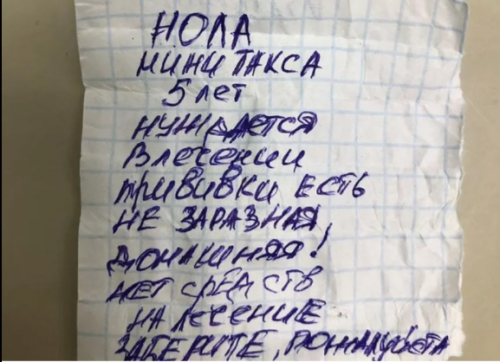 НОЛА
МИНИ ТАКСА
5 лет
НУЖДАЕТСЯ
В лечении
ПРИВИВКИ ЕСТЬ
НЕ ЗАРАЗНАЯ,
ДОМАШНЯЯ!
НЕТ СРЕДСТВ
НА лечение
ЗАБЕРИТЕ, ПОЖАЛУЙСТА